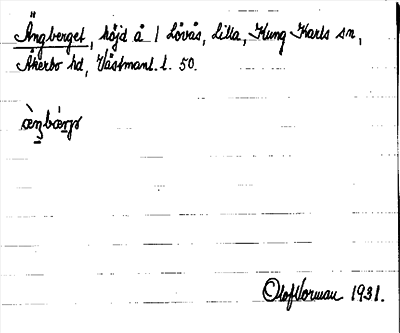 Ängberget, höjd å 1 Lövås, Lilla, Kung Karls sn,
Åkerbo hd, Västmanl. l. 50.
Olof Norman 1931.